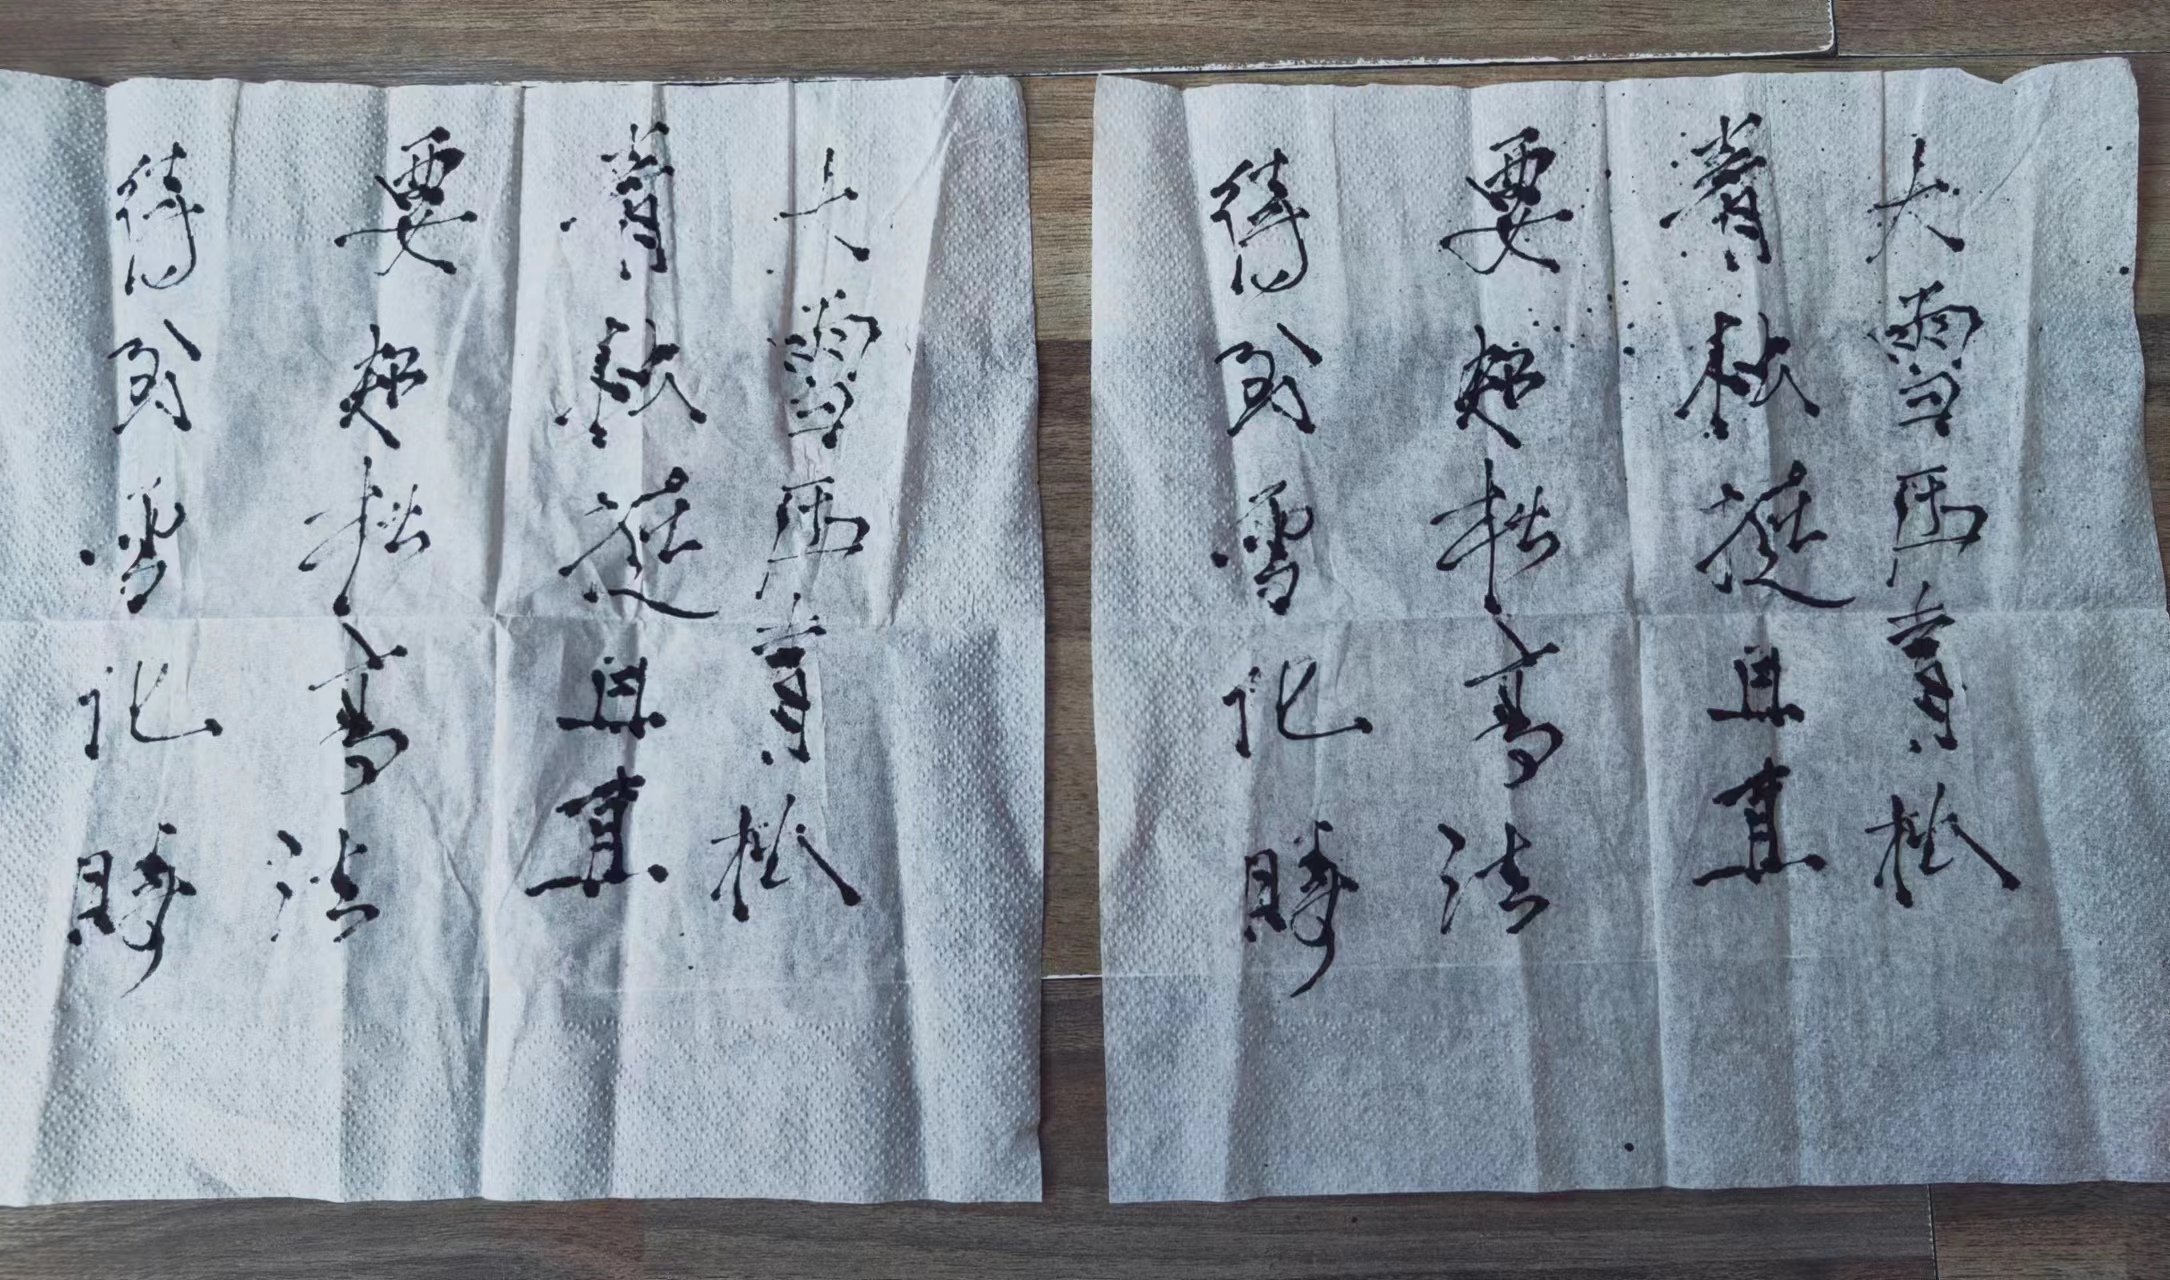 大雪压青松
青松挺且直
要知松高洁
待到雪化時
大雪压青松
青松挺且直
要知松高洁
待到雪化時